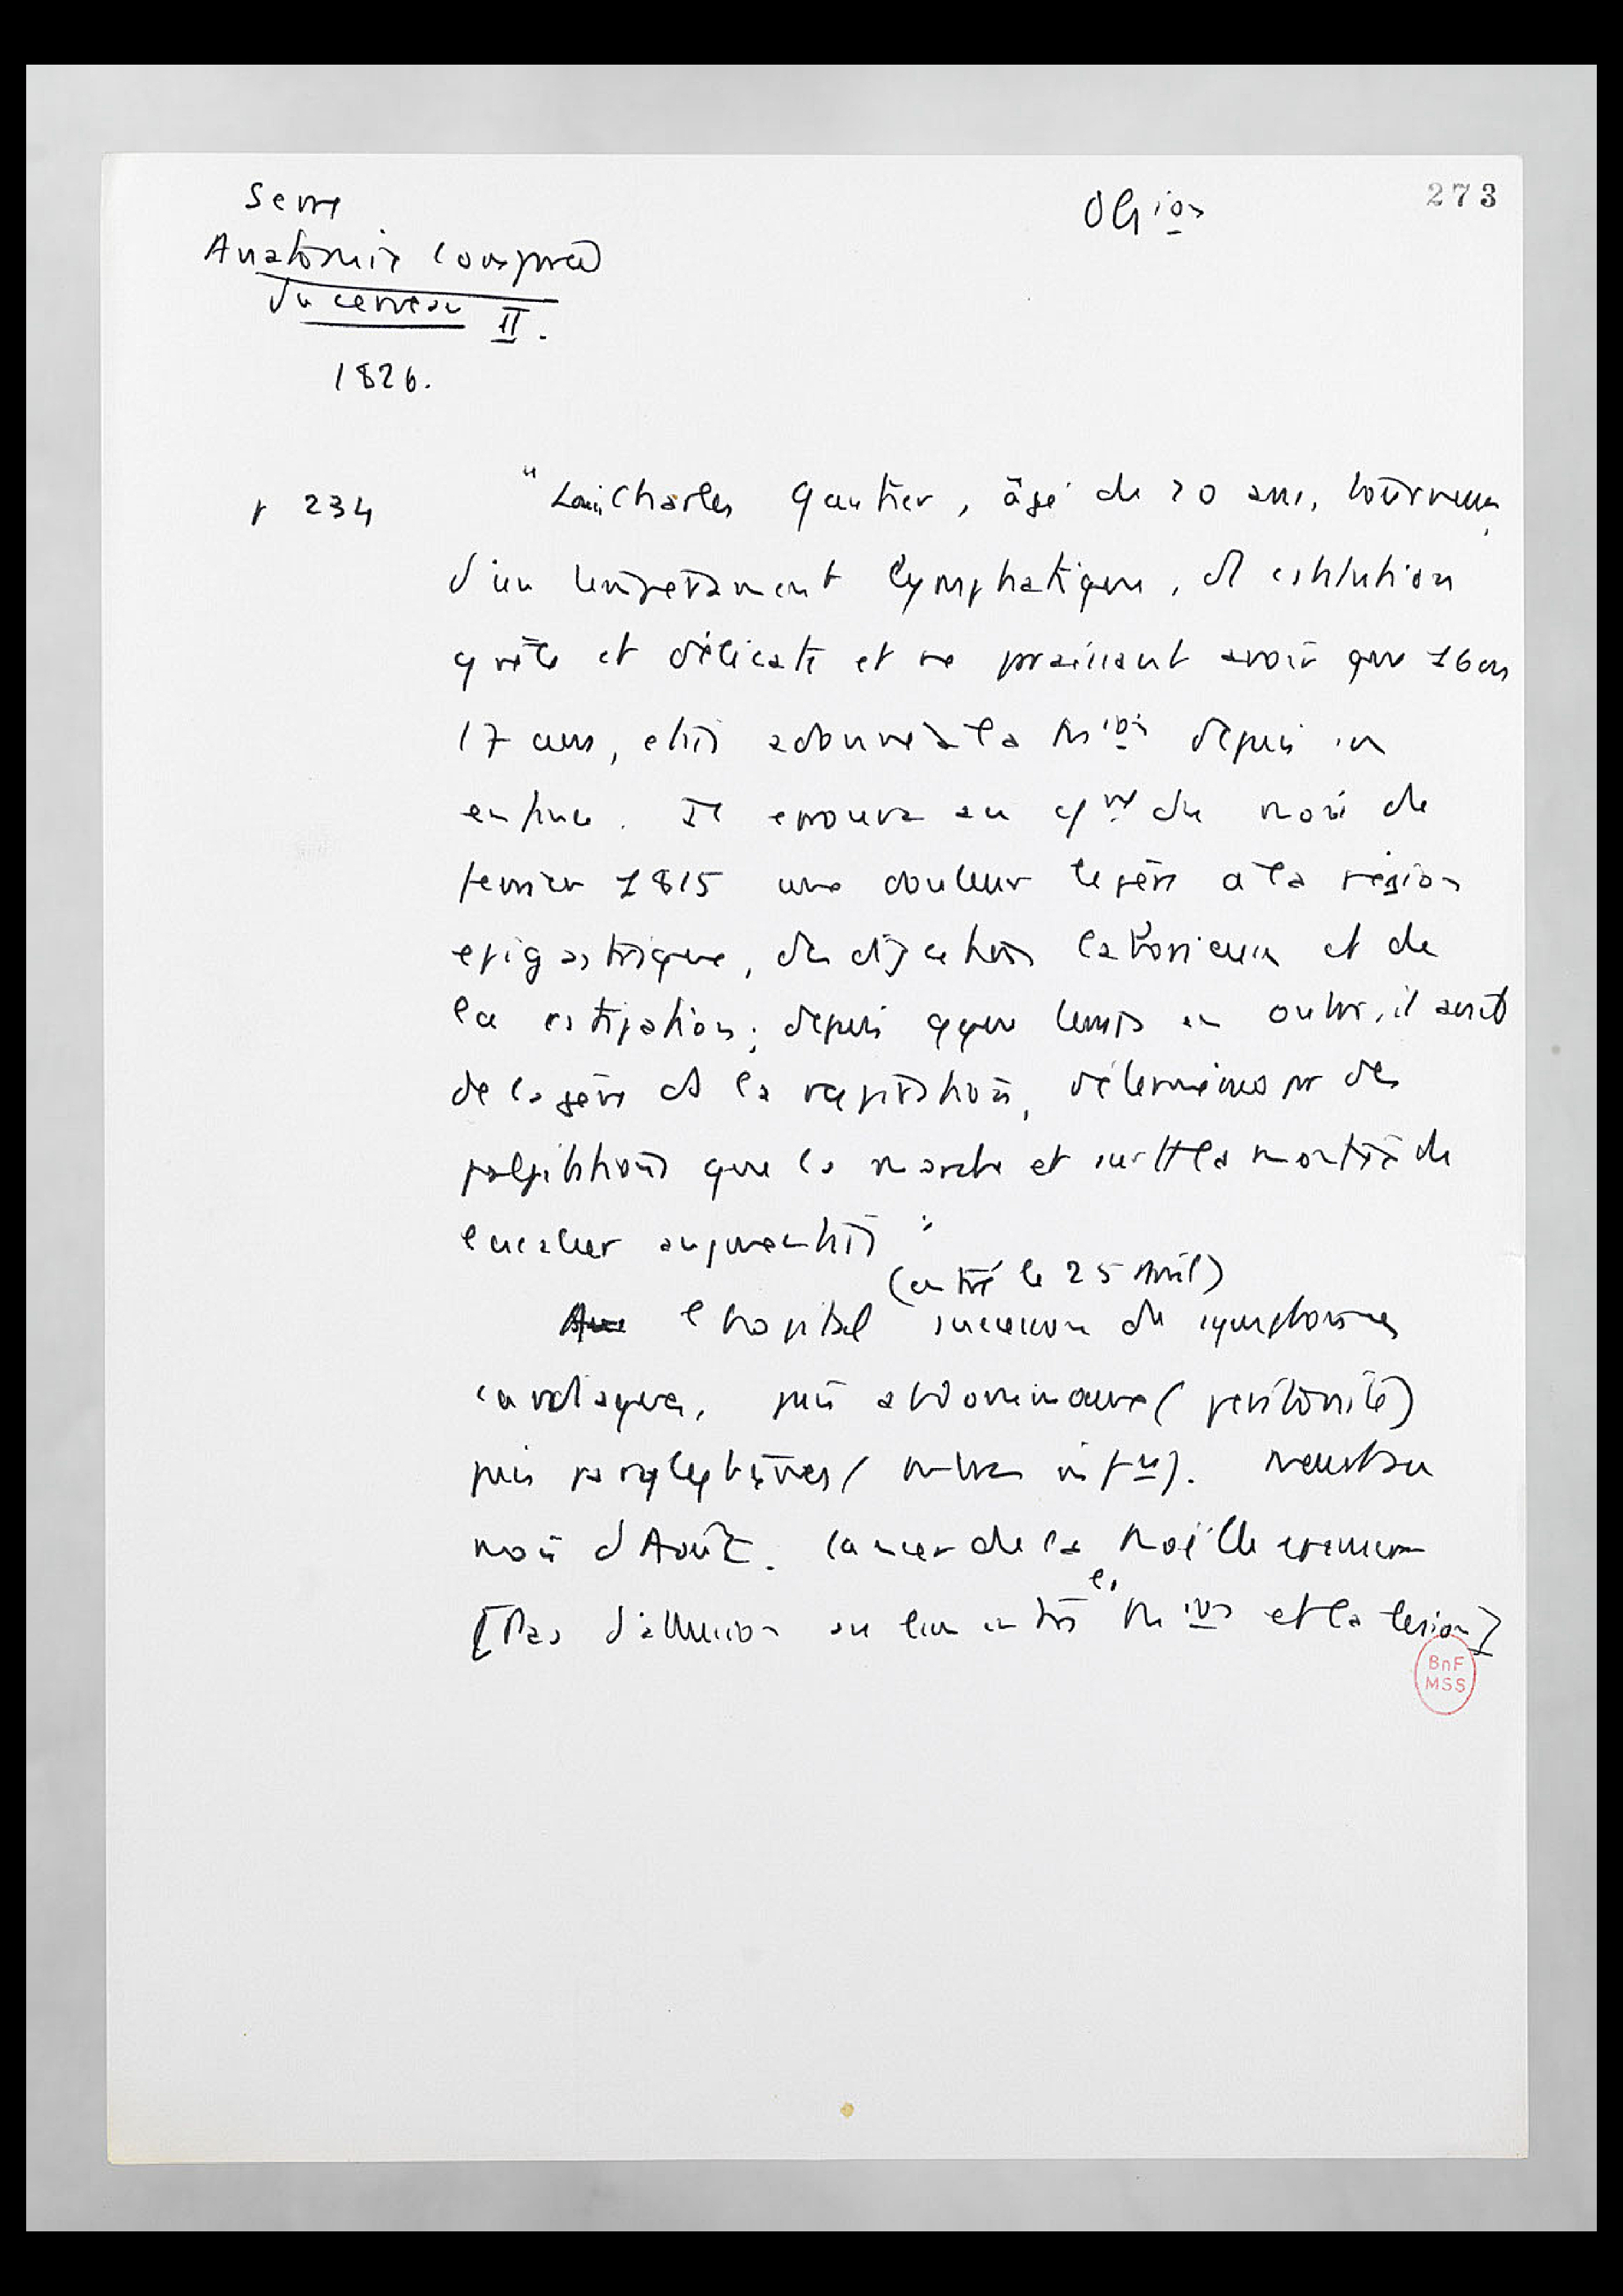 Serre
Obs ion
273
Anatomie comparée
du cerveau II.
1826.
p 234
"Louis Charles Gautier, âgé de 20 ans, tourneur,
d'un temperament lymphatique, de cstitution
grêle et délicate et ne praissant avoir que 16 ou
17 ans, était adonné à la Mion depuis
enfance. Il eprouva au cmt du mois de
fevrier 1815 une douleur legère à la région
epigastrique, des digestions laborieuses et de
la cstipation; depuis qque temps en outre, il avait
de la gêne ds la respiration, déterminée pr des
palpitations que la marche et surtt la montée de
l'escalier augmentait"
(entré le 25 Avril)
l'hopital succession de symptomes
cardiaques, puis abdominaux (peritonite)
puis paralytiques (mbres infrs). Meurt au
mois d'Août. Cancer de la moëlle
[Pas d'allusion au lien entre la Mion et la lesion]
BnF
MSS